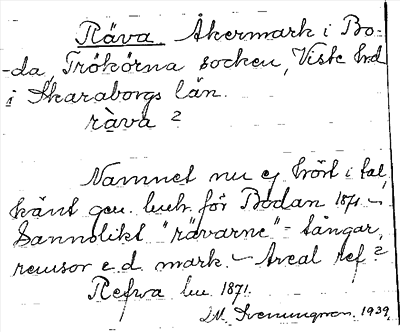 Räva. Åkermark i Bo-
-da, Trökörna socken, Viste hrd
i Skaraborgs län.
ràva ?
Namnet nu ej hört i tal,
känt gen. lmh. för Bodan 1871 –
Sannolikt "rävarne" = tångar,
remsor e.d. mark. – Areal ref ?
Refwa lm 1871.
D.N. Svenungsson. 1939